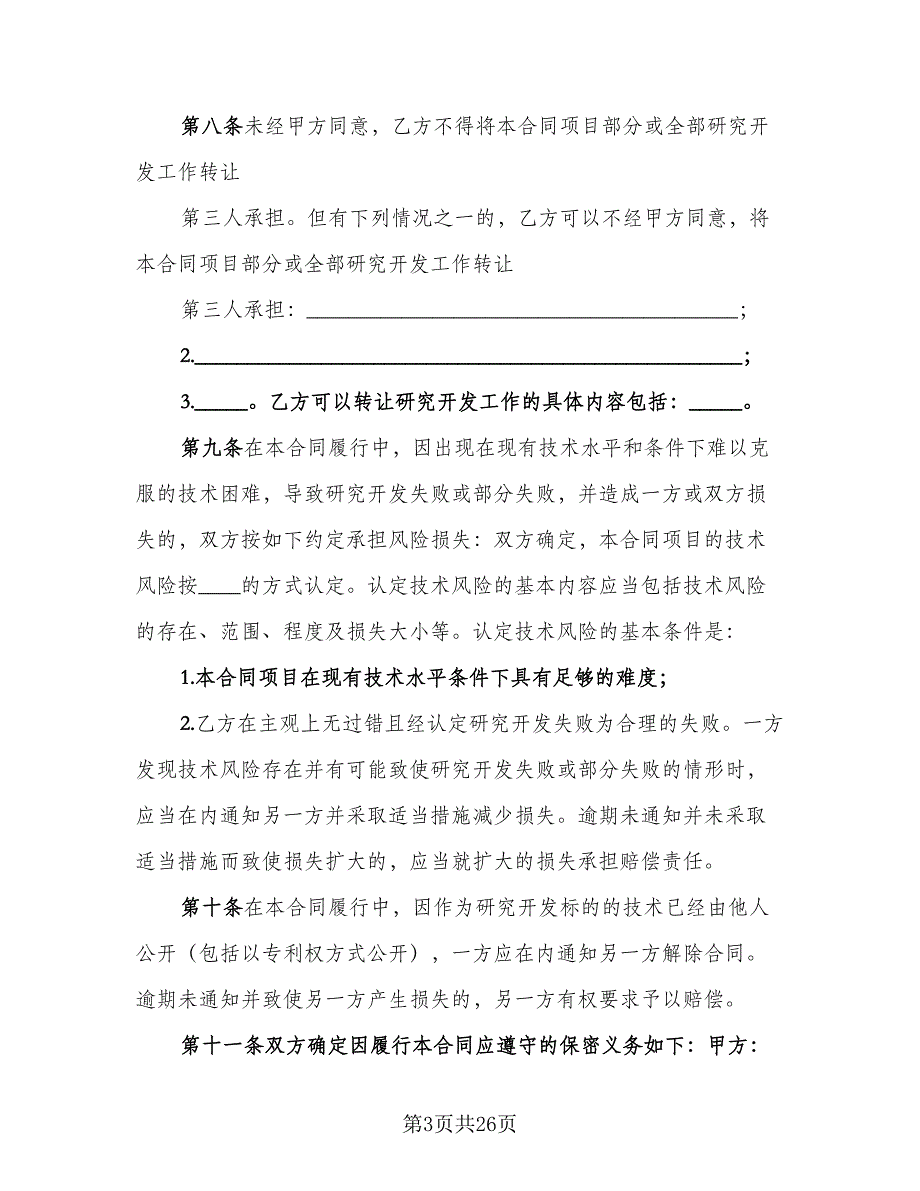 第八条未经甲方同意，乙方不得将本合同项目部分或全部研究开
发工作转让
第三人承担。但有下列情况之一的，乙方可以不经甲方同意，将
本合同项目部分或全部研究开发工作转让
第三人承担：_________________________________________；
2.____________________________________________________；
3._____。乙方可以转让研究开发工作的具体内容包括：_____。
第九条在本合同履行中，因出现在现有技术水平和条件下难以克
服的技术困难，导致研究开发失败或部分失败，并造成一方或双方损
失的，双方按如下约定承担风险损失：双方确定，本合同项目的技术
风险按____的方式认定。认定技术风险的基本内容应当包括技术风险
的存在、范围、程度及损失大小等。认定技术风险的基本条件是：
1.本合同项目在现有技术水平条件下具有足够的难度；
2.乙方在主观上无过错且经认定研究开发失败为合理的失败。一方
发现技术风险存在并有可能致使研究开发失败或部分失败的情形时，
应当在内通知另一方并采取适当措施减少损失。逾期未通知并未采取
适当措施而致使损失扩大的，应当就扩大的损失承担赔偿责任。
第十条在本合同履行中，因作为研究开发标的的技术已经由他人
公开（包括以专利权方式公开），一方应在内通知另一方解除合同。
逾期未通知并致使另一方产生损失的，另一方有权要求予以赔偿。
第十一条双方确定因履行本合同应遵守的保密义务如下：甲方：
第3页共26页